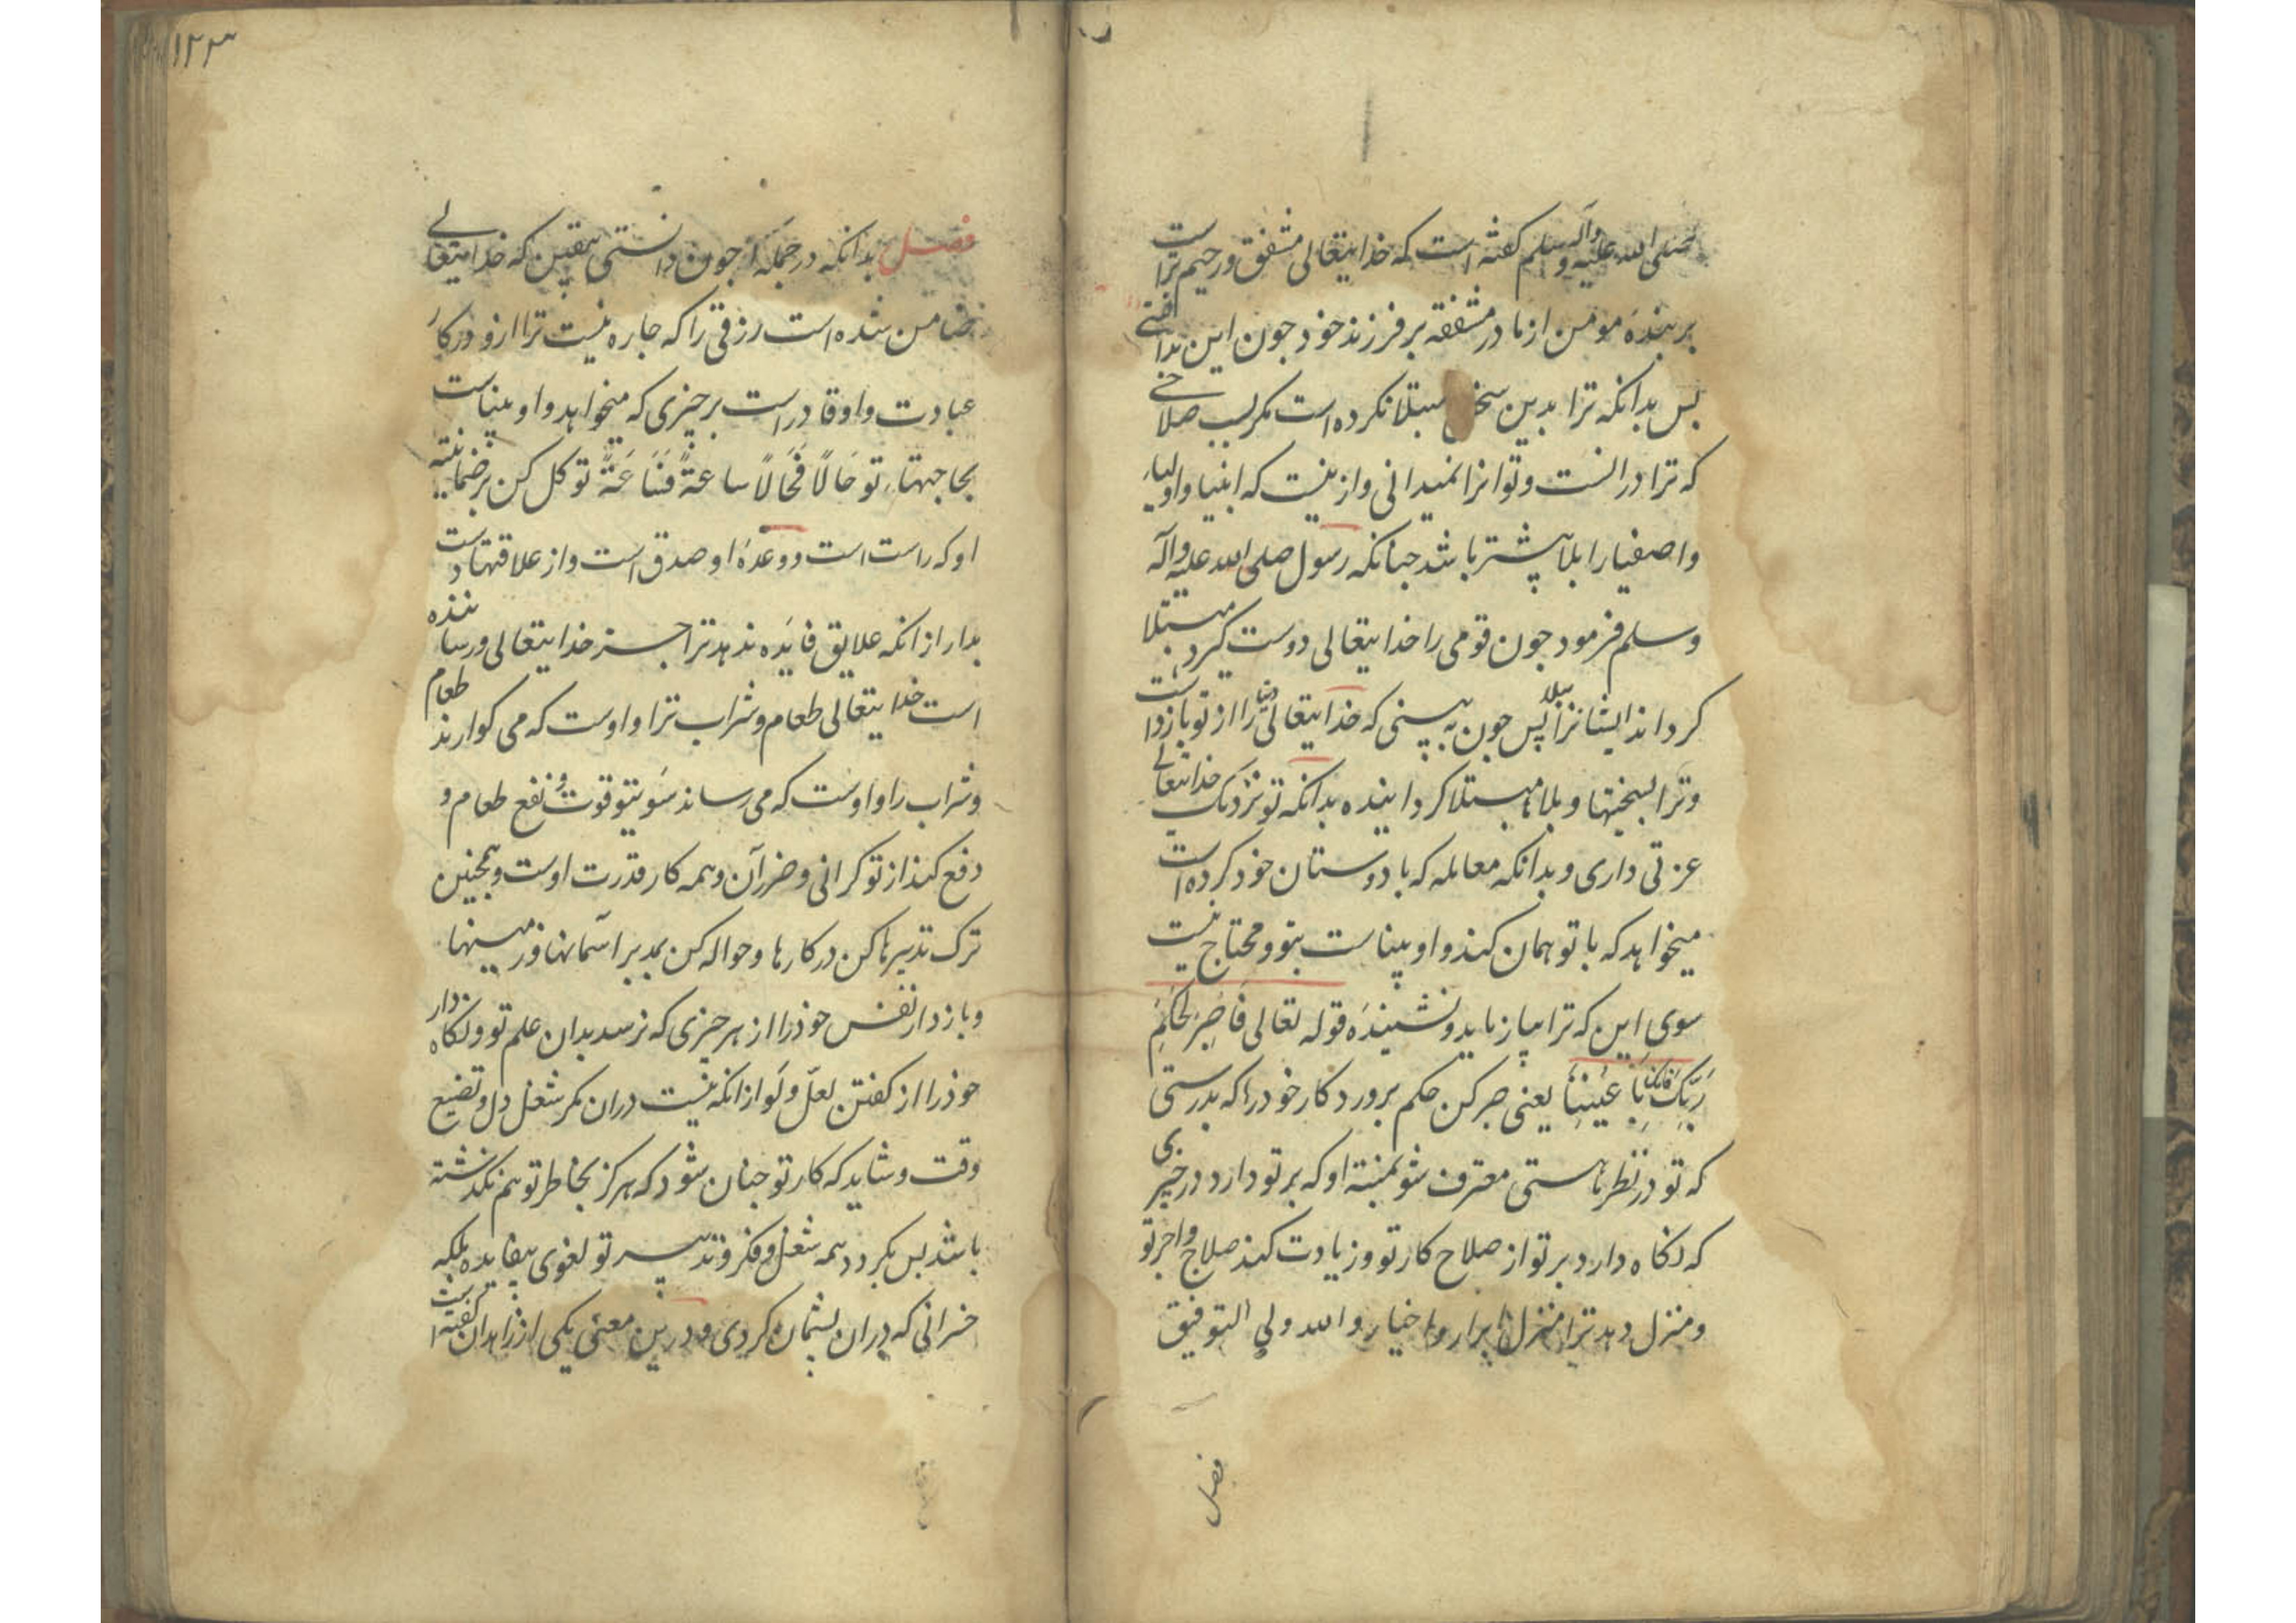 صلی الله علیه وآله وسلم گفته است که خدایتعالی مشفق و رحیم تراست
بر بندهٔ مومن از مادر مشفقه بر فرزند خود جون این بدانستی
بس بدانکه ترا بدین مبتلا نکرده است مکر بسبب صلاحی
که ترا درانست و تو انرا نمیدانی و ازینست که انبیا و اولیا
و اصفیا را بلا بیشتر باشد جنانکه رسول صلی الله علیه وآله
وسلم فرمود جون قومی را خدایتعالی دوست کیرد مبتلا
کرداند ایشانرا ببلا پس جون به بینی که خدایتعالی دنیا را از تو بازداشت
و ترا بسختیها و بلاها مبتلا کردانیده بدانکه تو نزدیک خدایتعالی
عزتی داری و بدانکه معامله که با دوستان خود کرده است
میخواهد که با تو همان کند و او بیناست بتو و محتاج نیست
سوی این که ترا بیازماید و نشنیدهٔ قوله تعالی فَاصْبِرْ لِحُکْمِ
رَبِّکَ فَاِنَّکَ بِاَعْیُنِنَا یعنی صبر کن حکم پرورد کار خود را که بدرستی
که تو در نظر ماستی معترف شو بمنتهٔ او که بر تو دارد در خیری
که نکاه دارد بر تو از صلاح کار تو و زیادت کند صلاح و اجر تو
و منزل دهد ترا منزل ابرار و اخیار والله ولی التوفیق
فصل
۱۲۳
فصل بدانکه در جمله جون دانستی بیقین که خدایتعالی
ضامن شده است رزقی را که جاره نیست ترا ازو در کار
عبادت و او قادراست بر جیزی که میخواهد و او بیناست
بحاجتهاء تو حَالًا فَحَالًا ساعةً فَسَاعَةً توکل کن بر ضمانتهٔ
او که راست است و وعدهٔ او صدق است و از علاقتها دست
بدار از انکه علایق فایده ندهد ترا جز خدایتعالی و رساننده
است خدایتعالی طعام و شراب ترا و اوست که می کوارند طعام
و شراب را و اوست که می رساند سوی تو قوت و نفع طعام و
دفع کند از تو کرانی و ضرر آن و همه کار قدرت اوست و همجنین
ترک تدبیرها کن در کارها و حواله کن بمدبر اسمانها و زمینها
و بازدار نفس خود را از هر جیزی که نرسد بدان علم تو و نکاه دار
خود را از کفتن لعلّ و لَو از انکه نیست دران مکر شغل دل و تضیع
وقت و شاید که کار تو جنان شود که هرکز بخاطر تو هم نکذشته
باشد بس بکردد همه شغل و فکر و تدبیر تو لغوی بیفایده بلکه
خسرانی که دران پشیمان کردی و درین معنی یکی از زاهدان کفته است